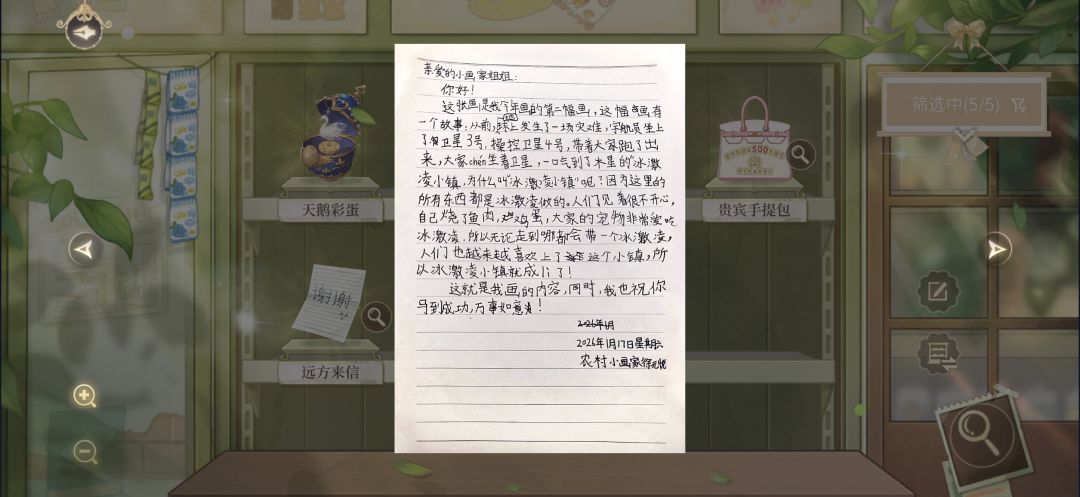 亲爱的小画家姐姐：
你好！
这张画是我今年画的第二幅画，这幅画有
一个故事，从前，球上发生了一场灾难，宇航员坐上
了卫星3号，操控卫星4号，带着大家跑了出
来，大家chén坐着卫星，一口气到了木星的"冰激
凌小镇，为什么叫"冰激凌小镇"呢？因为这里的
所有东西都是冰激凌做的。人们了见着很不开心，
自己烧了鱼肉，鸡蛋，大家的宠物非常爱吃
冰激凌，所以无论走到哪都会带一个冰激凌，
人们也越来越喜欢上了这个小镇，所
以冰激凌小镇就成立了！
这就是我画的内容，同时，我也祝你
马到成功，万事如意！
2026年1月
2026年1月17日星期六
农村小画家
筛选中(5/5)
天鹅彩蛋
500
贵宾手提包
谢谢
远方来信